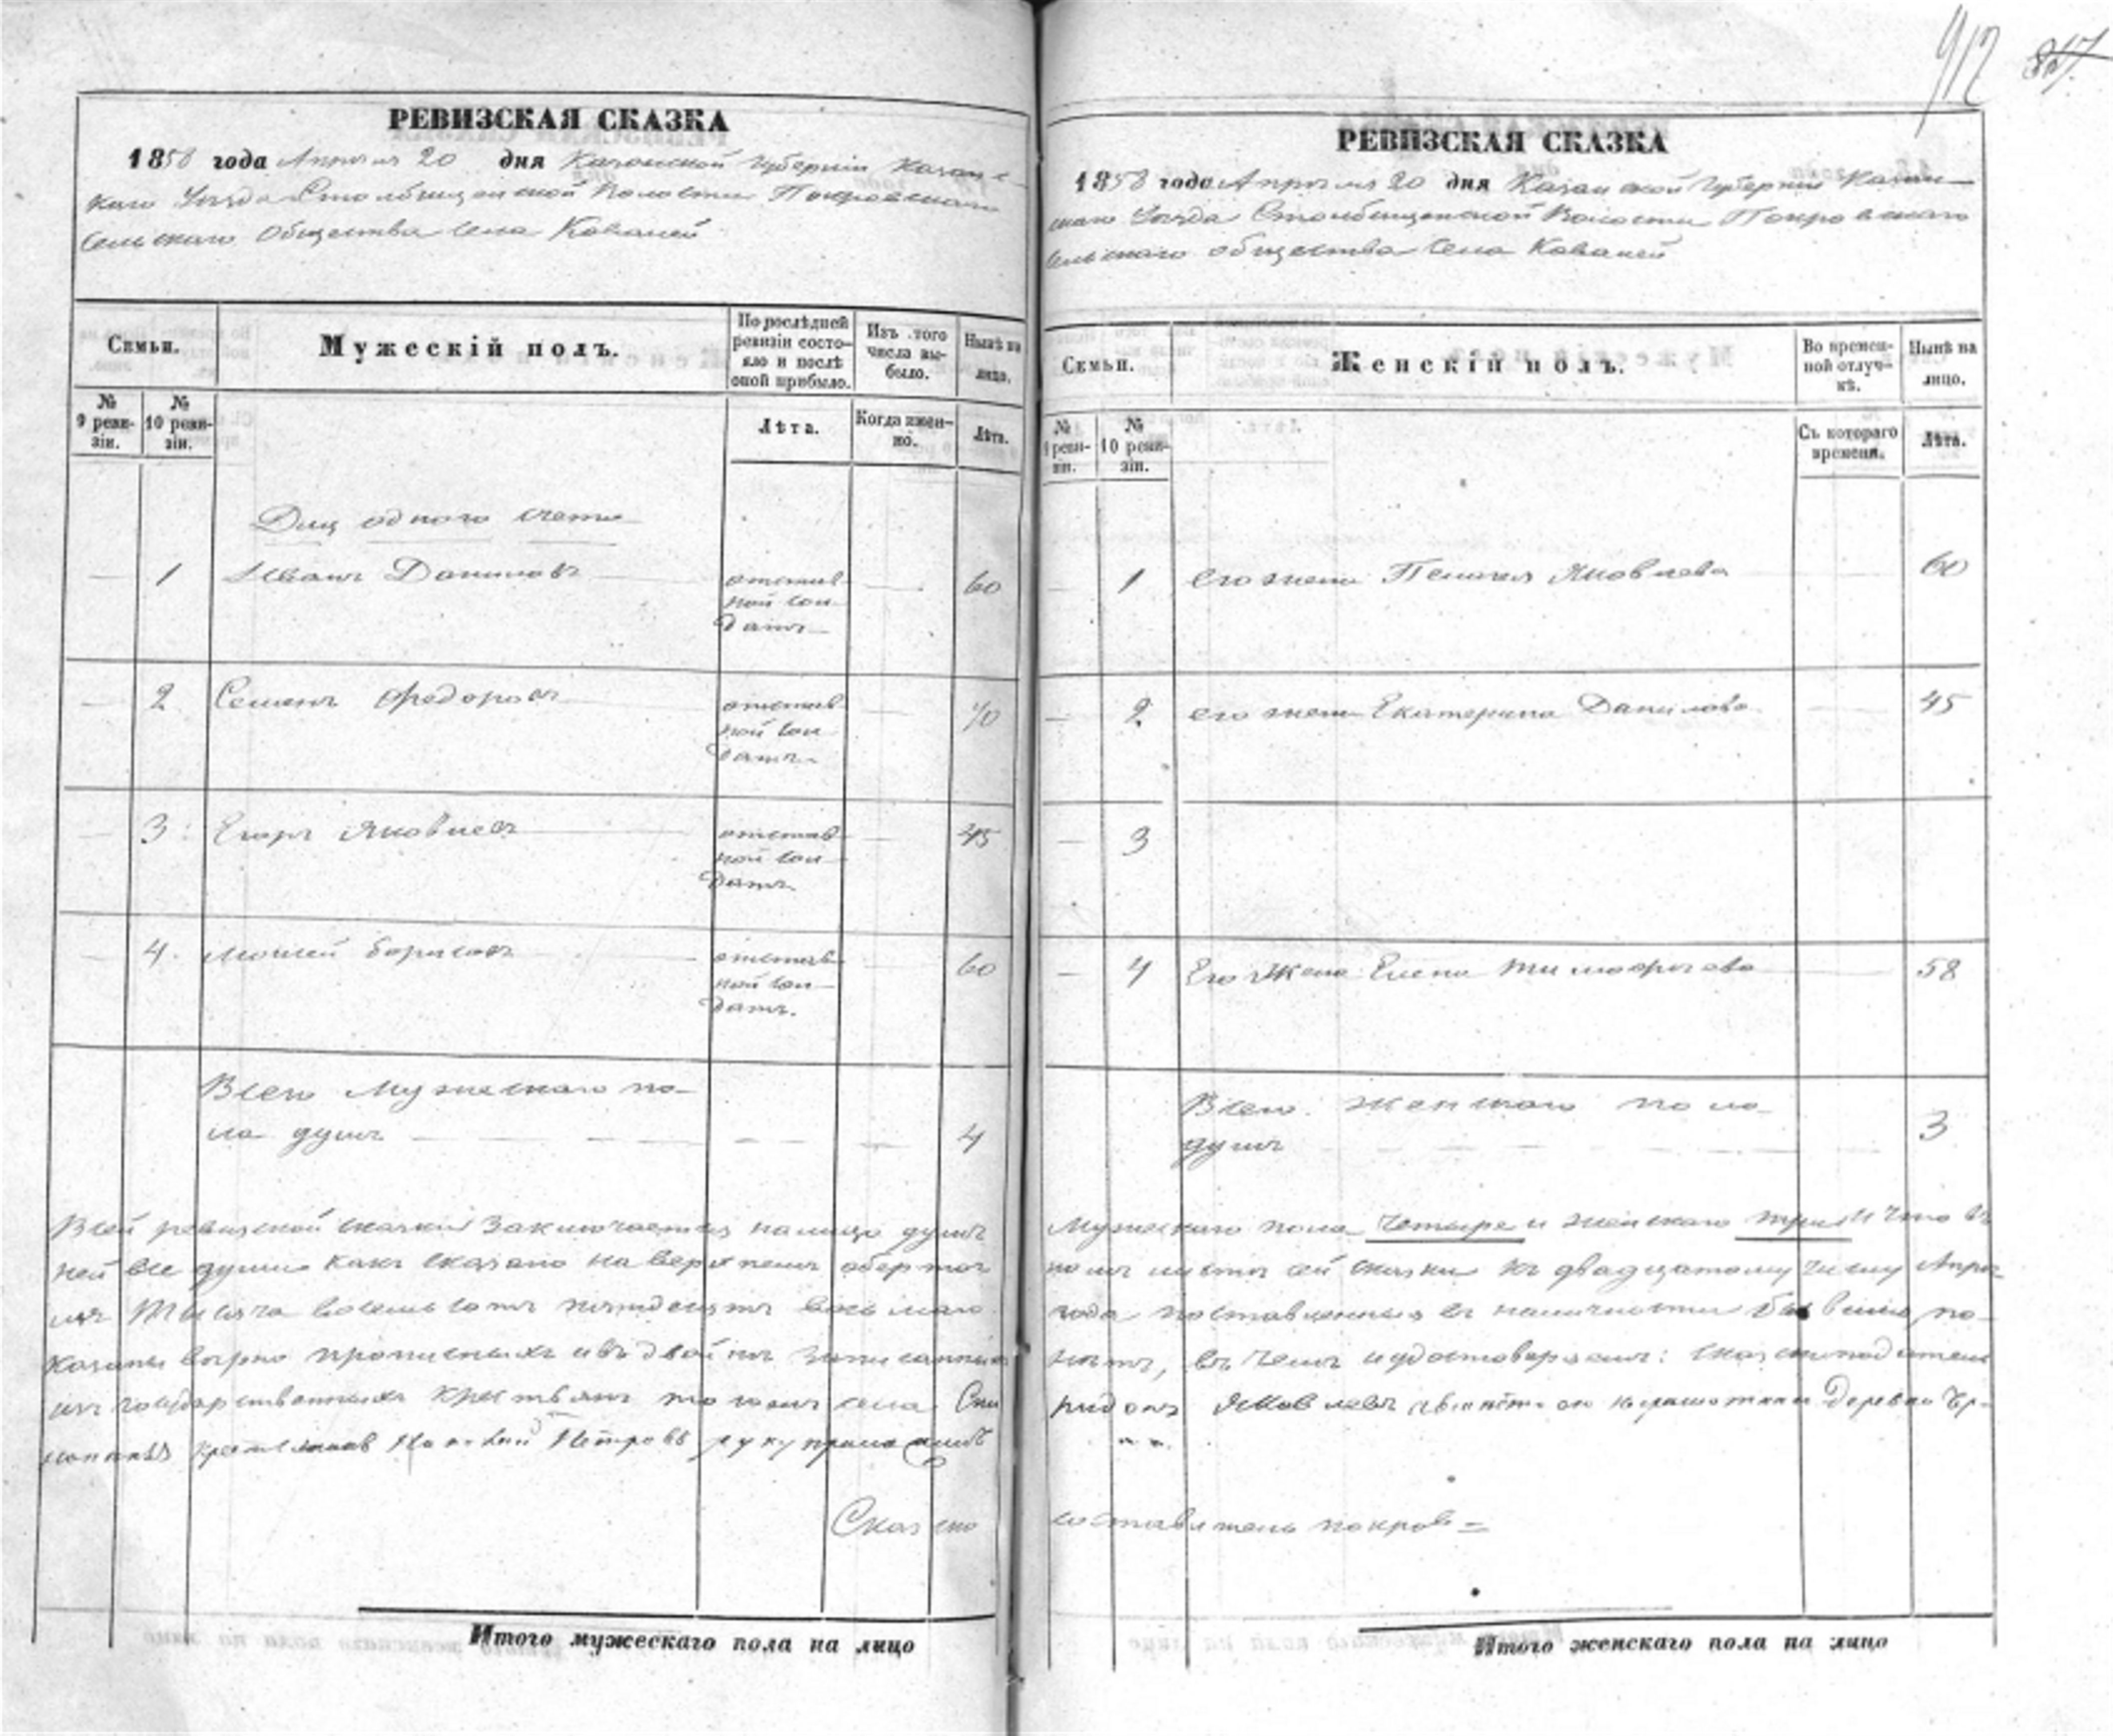 912
РЕВИЗСКАЯ СКАЗКА
1858 года Апреля 20 дня Казанской Губернiи Казанс-
каго Уезда Столбищенской Волости Покровскаго
Сельскаго Общества Села Ковалей
Семьи.
Мужескiй полъ.
По послѣдней ревизiи состо-яло и послѣ оной прибыло.
Изъ того числа вы-было.
Нынѣ на лицо.
№ 9 реви-зiи.
№ 10 реви-зiи.
Лѣта.
Когда имен-но.
Лѣта.
Для одного счета
1 Иванъ Даниловъ отстав-ной сол-датъ 60
2 Семенъ Федоровъ отстав-ной сол-датъ 70
3 Егоръ Яковлевъ отстав-ной сол-датъ 45
4. Моисей Борисовъ отстав-ной сол-датъ. 60
Всего Мужескаго по-
ла душъ 4
Всей ревизской сказки заключается налицо душъ
ней все души какъ сказано на верхнемъ
Тысяча восемьсотъ пятьдесятъ восьмаго
Казаны верно прописныхъ
изъ государственныхъ крестьянъ того села Спи
крестьянинъ Петровъ руку приложилъ
Сказко
Итого мужескаго пола на лицо
РЕВИЗСКАЯ СКАЗКА
1858 года Апреля 20 дня Казанской Губернiи Казан-
скаго Уезда Столбищенской Волости Покровскаго
сельскаго общества Села Ковалей
Семьи.
Женскiй полъ.
Во времен-ной отлуч-кѣ.
Нынѣ на лицо.
№ 9 реви-зiи.
№ 10 реви-зiи.
Съ котораго времени.
Лѣта.
1 его жена Пелагея Яковлева 60
2 его жена Екатерина Данилова 45
3
4 Его Жена Елена Тимофеева 58
Всего женскаго пола
душъ 3
Мужескаго пола четыре и женскаго три И что въ
сей сказки къ двадцатому числу Апре
года поставленныя въ наличности бывшие по
въ чемъ и удостоверяемъ: сказкоподатель
ридонъ Яковлевъ Деревни
составитель покров=
Итого женскаго пола на лицо